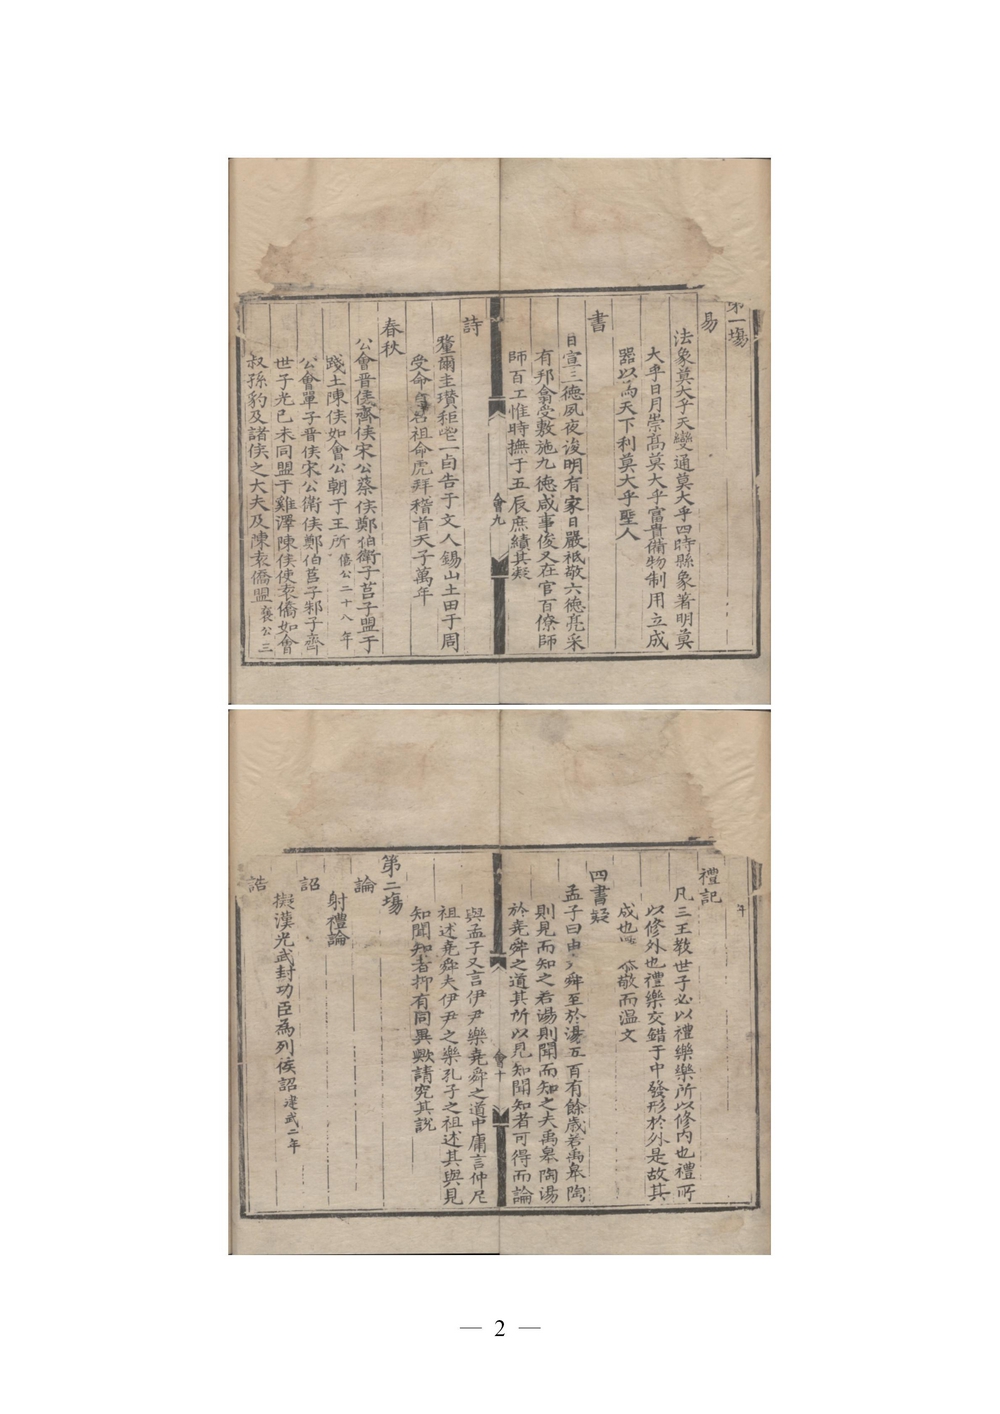 第一場
易
法象莫大乎天變通莫大乎四時縣象著明莫
大乎日月崇高莫大乎富貴備物制用立成
器以為天下利莫大乎聖人
書
日宣三德夙夜浚明有家日嚴祗敬六德亮采
有邦翕受敷施九德咸事俊乂在官百僚師
師百工惟時撫于五辰庶績其凝
會九
詩
釐爾圭瓚秬鬯一卣告于文人錫山土田于周
受命自召祖命虎拜稽首天子萬年
春秋
公會晉侯齊侯宋公蔡侯鄭伯衛子莒子盟于
踐土陳侯如會公朝于王所 僖公二十八年
公會單子晉侯宋公衛侯鄭伯莒子邾子齊
世子光已未同盟于雞澤陳侯使袁僑如會
叔孫豹及諸侯之大夫及陳袁僑盟 襄公三
年
禮記
凡三王教世子必以禮樂樂所以修内也禮所
以修外也禮樂交錯于中發形於外是故其
成也 恭敬而温文
四書疑
孟子曰由 舜至於湯五百有餘歲若禹皋陶
則見而知之若湯則聞而知之夫禹皋陶湯
於堯舜之道其所以見知聞知者可得而論
會十
與孟子又言伊尹樂堯舜之道中庸言仲尼
祖述堯舜夫伊尹之樂孔子之祖述其與見
知聞知者抑有同異歟請究其說
第二場
論
射禮論
詔
擬漢光武封功臣為列侯詔 建武二年
誥
— 2 —